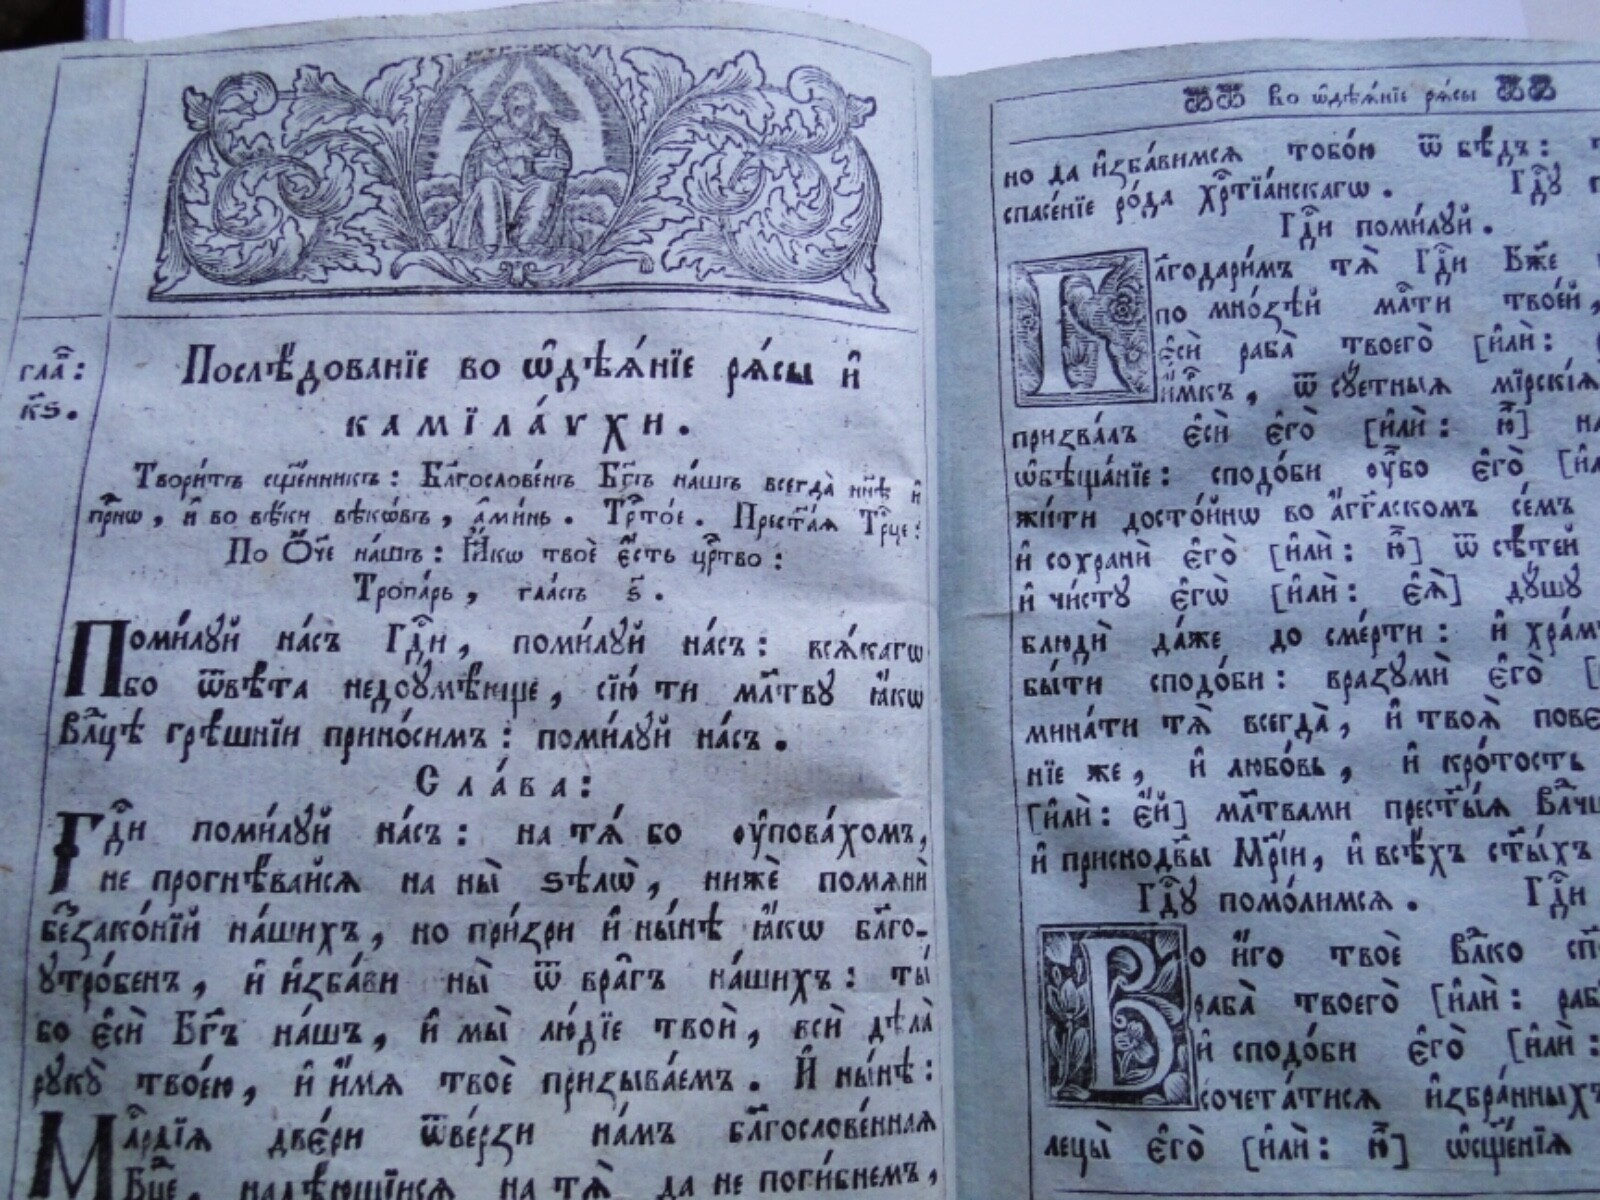 гла҃:
к҃ѕ.
Послѣ́дованїе во ѡ҆дѣѧ́нїе рѧ́сы и҆
камїла́ѵхи.
Твори́тъ сщ҃е́нникъ: Блгⷭ҇ове́нъ Бг҃ъ на́шъ всегда̀ нн҃ѣ и҆
при́нѡ, и҆ во вѣ́ки вѣкѡ́въ, а҆ми́нь. Трⷭ҇то́е. Прест҃а́ѧ Трⷪ҇це:
По Ѻ҆́ч҃е на́шъ: Ꙗ҆́кѡ твоѐ е҆́сть црⷭ҇тво:
Тропа́рь, гла́съ ѕ҃.
Поми́лꙋй на́съ Гдⷭ҇и, поми́лꙋй на́съ: всѧ́кагѡ
бо ѿвѣ́та недоꙋмѣ́юще, сїю̀ ти мл҃твꙋ ꙗ҆́кѡ
влⷣцѣ грѣ́шнїи прино́симъ: поми́лꙋй на́съ.
Сла́ва:
Гдⷭ҇и поми́лꙋй на́съ: на тѧ́ бо ᲂу҆пова́хомъ,
не прогнѣ́вайсѧ на ны̀ ѕѣлѡ̀, нижѐ помѧнѝ
беззако́нїй на́шихъ, но при́зри и҆ ны́нѣ ꙗ҆́кѡ бл҃го-
ꙋтро́бенъ, и҆ и҆зба́ви ны̀ ѿ вра̑гъ на́шихъ: ты́
бо є҆сѝ Бг҃ъ на́шъ, и҆ мы̀ лю́дїе твоѝ, всѝ дѣла̀
рꙋкꙋ̀ твоє́ю, и҆ и҆́мѧ твоѐ призыва́емъ. И҆ ны́нѣ:
Млⷭ҇рдїѧ две́ри ѿве́рзи на́мъ бл҃гослове́ннаѧ
Бц҃е, надѣ́ющїисѧ на тѧ̀ да не поги́бнемъ,
Во ѡ҆дѣѧ́нїе рѧ́сы
но да и҆зба́вимсѧ тобо́ю ѿ бѣ́дъ:
спасе́нїе ро́да хрⷭ҇тїа́нскагѡ. Гдⷭ҇ꙋ
Гдⷭ҇и поми́лꙋй.
Благодари́мъ тѧ̀ Гдⷭ҇и Бж҃е
по мно́зѣй млⷭ҇ти твое́й,
є҆сѝ раба̀ твоего̀ [и҆лѝ:
и҆́мкъ, ѿ сꙋ́етныѧ мїрскі́ѧ
призва́лъ є҆сѝ є҆го̀ [и҆лѝ: ю҆̀]
ѡ҆бѣща́нїе: сподо́би ᲂу҆́бо є҆го̀
жи́ти досто́йнѡ во а҆́гг҃лскомъ се́мъ
и҆ сохранѝ є҆го̀ [и҆лѝ: ю҆̀] ѿ сѣ́тей
и҆ чи́стꙋ є҆гѡ̀ [и҆лѝ: є҆ѧ̀] дꙋ́шꙋ
блюдѝ да́же до сме́рти: и҆
бы́ти сподо́би: вразꙋмѝ є҆го̀
мина́ти тѧ̀ всегда̀, и҆ твоѧ̀
нїе же, и҆ любо́вь, и҆ кро́тость
[и҆лѝ: є҆́й] мл҃твами прест҃ы́ѧ
и҆ приснодв҃ы Мр҃і́и, и҆ всѣ́хъ ст҃ы́хъ
Гдⷭ҇ꙋ помо́лимсѧ. Гдⷭ҇и
Во и҆́го твоѐ влⷣко
раба̀ твоего̀ [и҆лѝ:
и҆ сподо́би є҆го̀ [и҆лѝ:
сочета́тисѧ и҆збра́нныхъ
є҆го̀ [и҆лѝ: ю҆̀] ѡ҆сщ҃е́нїѧ